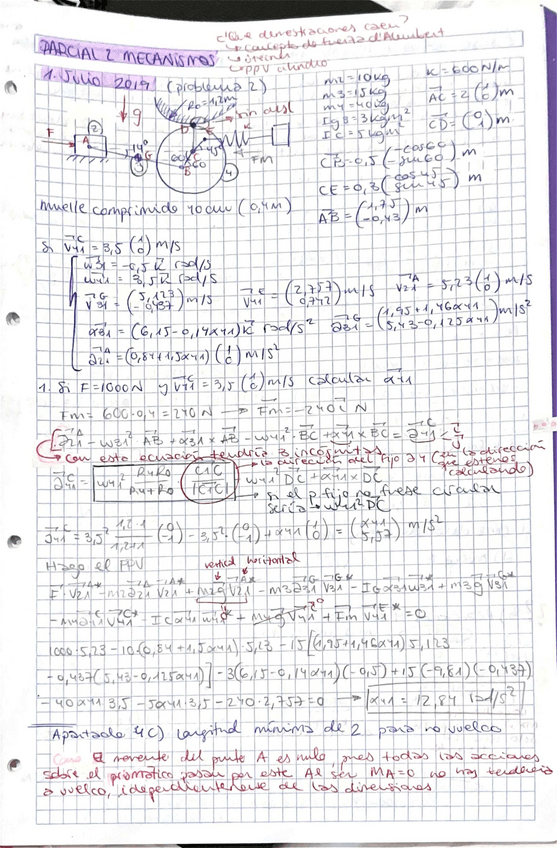 ¿Que demostraciones caen?
→ concepto de fuerza d'Alembert
→ steiner
→ PPV cilindro
PARCIAL 2 MECANISMOS
1. Julio 2019 (problema 2)
R0=1,2m
g
F
A
2
14°
G
3
60
B
C
45°
E
K
Fm
4
m2 = 10kg
m3 = 15kg
m4 = 40kg
IG3 = 3kgm²
IC = 5kgm²
K = 600N/m
AC = 2 (1 0) m
CD = (0 1) m
CB = 0,5 (-cos60 -sen60) m
CE = 0,3 (cos45 sen45) m
AB = (1,75 -0,43) m
muelle comprimido 40cm (0,4m)
Si V41^C = 3,5 (1 0) m/s
w31 = -0,5 k rad/s
w41 = 3,5 k rad/s
V31^G = (5,123 -0,437) m/s V41^E = (2,757 0,742) m/s V21^A = 5,23 (1 0) m/s
α31 = (6,15-0,14α41) k rad/s² a31^G = (1,95+1,46α41 5,43-0,125α41) m/s²
a21^A = (0,84+1,5α41) (1 0) m/s²
1. Si F=1000N y V41^C = 3,5 (1 0) m/s calcular α41
Fm = 600·0,4 = 240N → Fm = -240 i N
a21^A - w31² AB + α31 × AB - w41² · BC + α41 × BC = a41^C < i j
→ con esta ecuación tendría 3 incógnitas
→ la dirección del fijo a 4 (en la dirección que estemos calculando)
a41^C = w41² R4·R0 / R4+R0 (C1C / |C1C|) w41² DC + α41 × DC
→ si el p. fijo no fuese circular sería → w41² DC
a41^C = 3,5² 1,2·1 / 1,2+1 (0 -1) - 3,5² · (0 -1) + α41 (1 0) = (α41 5,57) m/s²
Hago el PPV
vertical horizontal
F · V21^A* - m2 a21^A V21^A* + m2g V21^A* - m3 a31^G V31^G* - IG α31 w31* + m3g V31^G*
- m4 a41^C V41^C* - IC α41 w41* + m4g V41^C* + Fm V41^E* = 0
1000·5,23 - 10·(0,84+1,5α41)·5,23 - 15[(1,95+1,46α41) 5,123
- 0,437(5,43-0,125α41)] - 3(6,15-0,14α41)(-0,5) + 15(-9,81)(-0,437)
- 40α41·3,5 - 5α41·3,5 - 240·2,757 = 0 → α41 = 12,84 rad/s²
Apartado 4C) Longitud mínima de 2 para no vuelco
El momento del punto A es nulo, pues todas las acciones
sobre el prismático pasan por este. Al ser MA=0 no hay tendencia
a vuelco, independientemente de las dimensiones